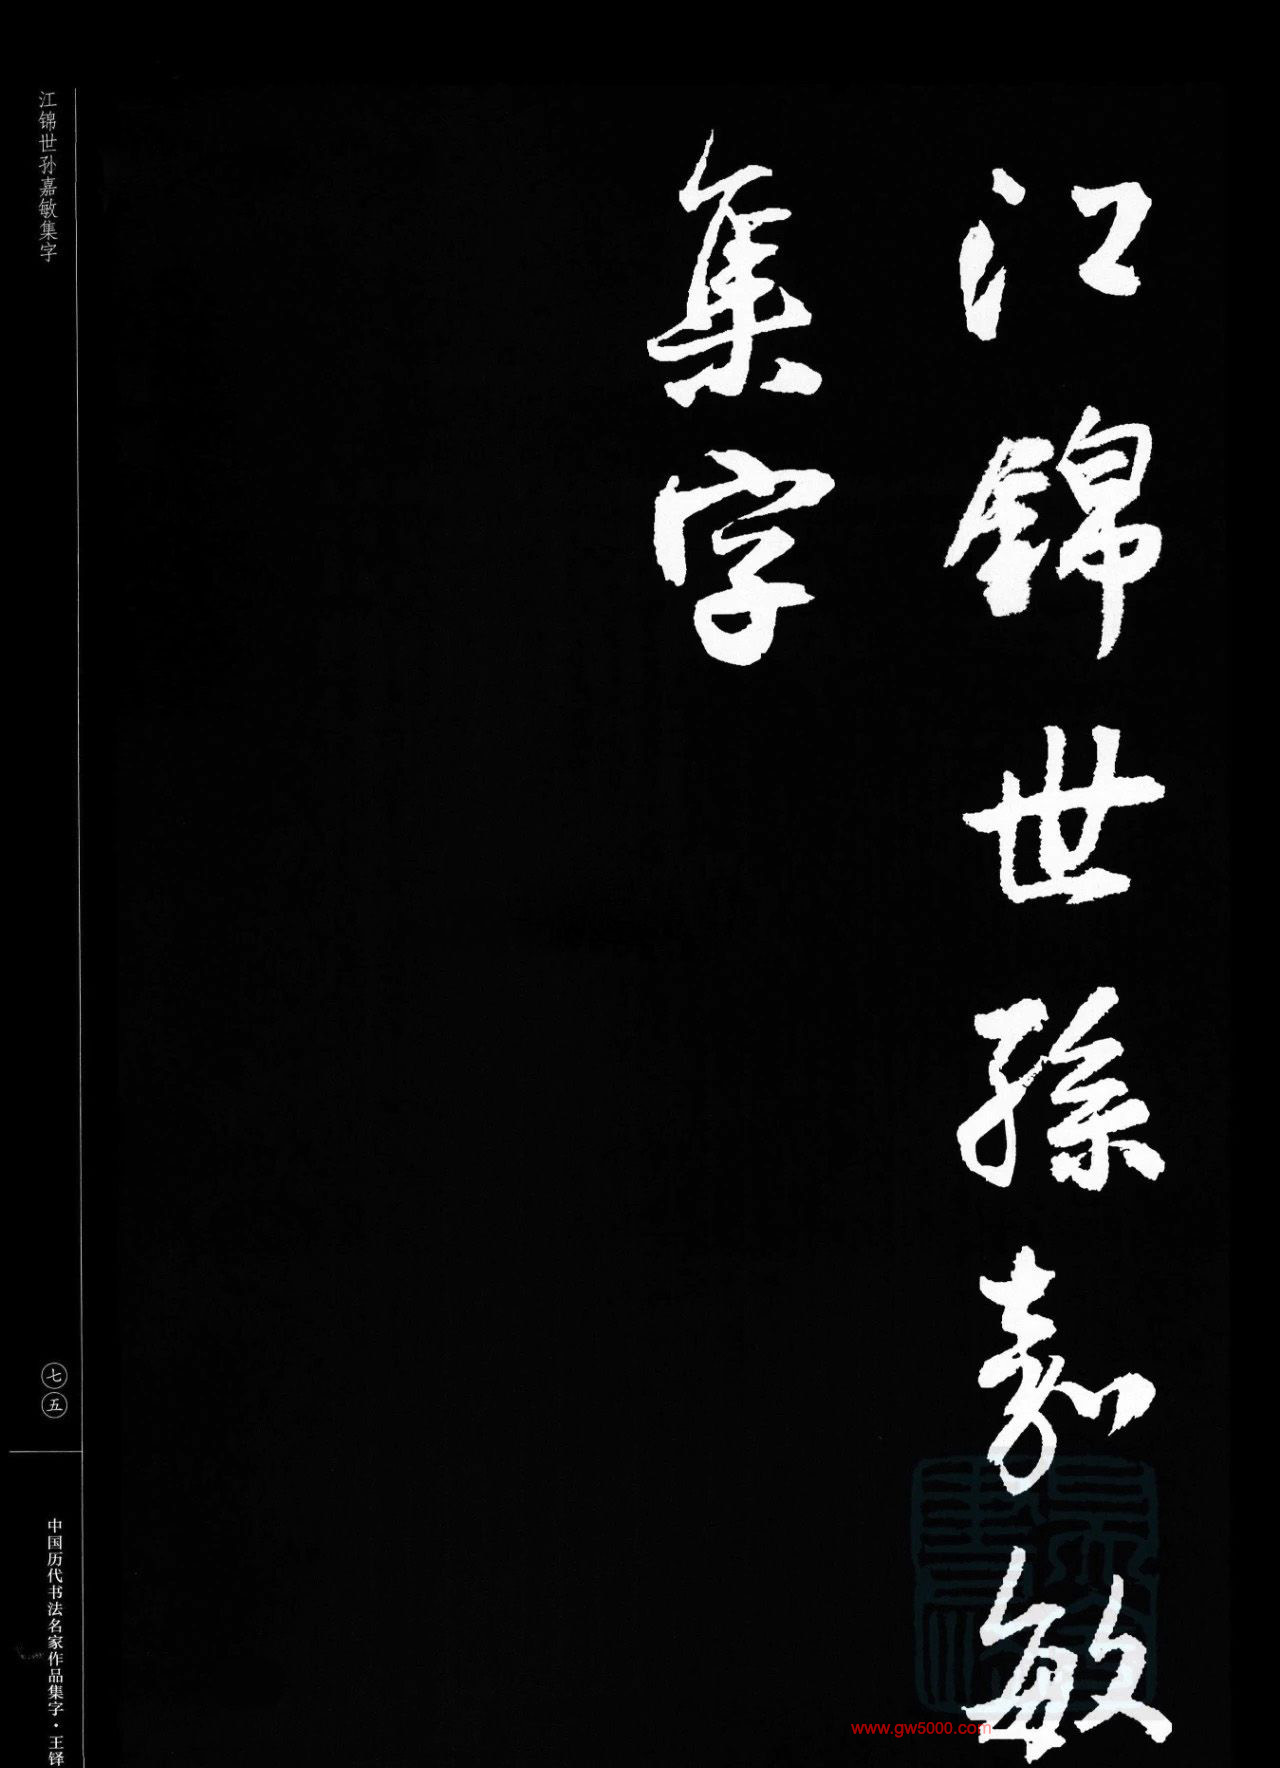 江錦世孫嘉敏
集字
江锦世孙嘉敏集字
七五
中国历代书法名家作品集字·王铎
www.gw5000.com